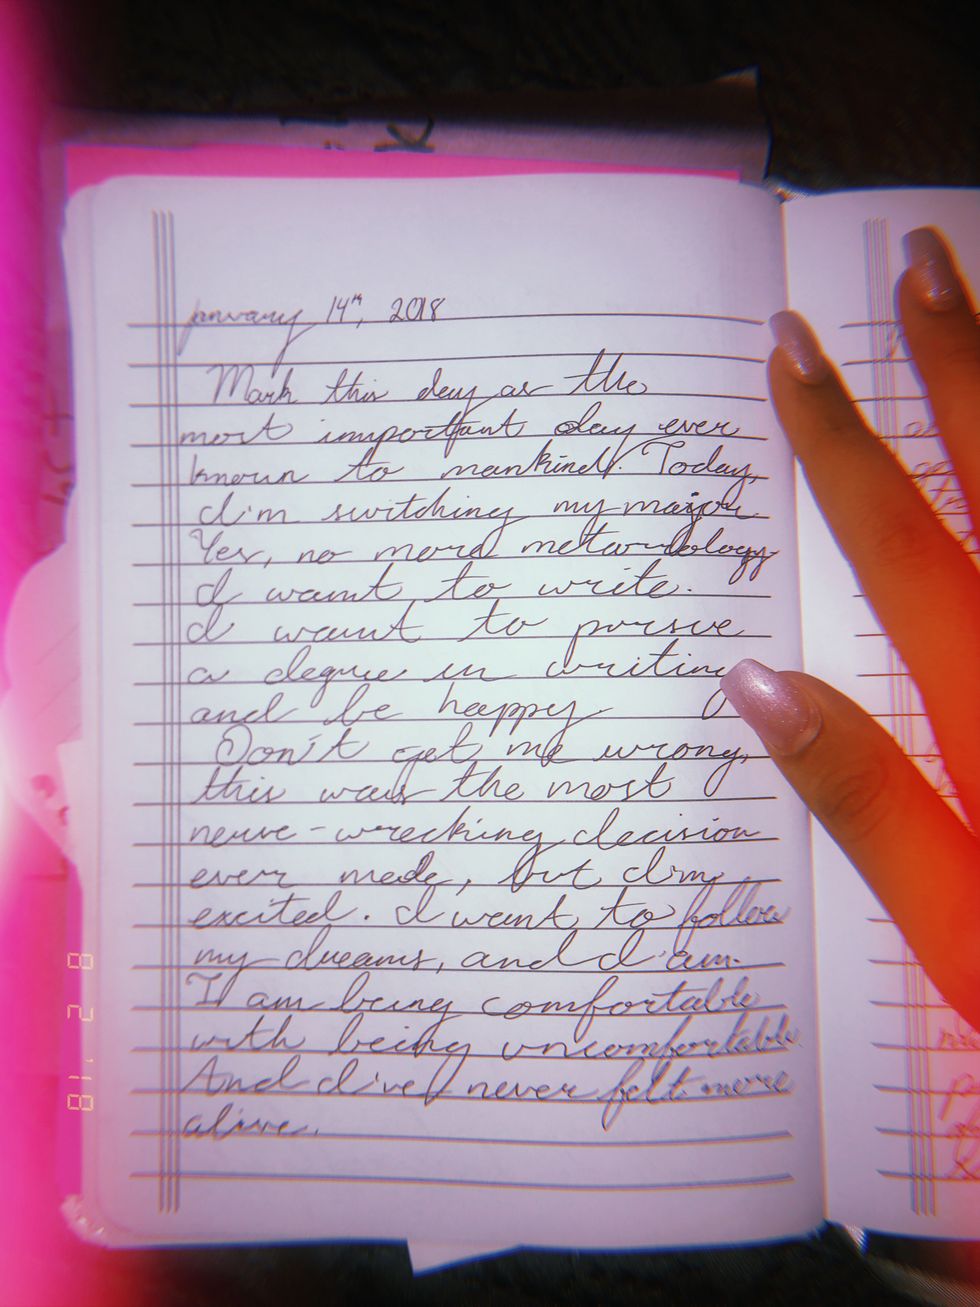 January 14th, 2018
Mark this day as the
most important day ever
known to mankind. Today,
I'm switching my major.
Yes, no more meteorology
I want to write.
I want to pursue
a degree in writing
and be happy.
Don't get me wrong,
this was the most
nerve-wrecking decision
ever made, but I'm
excited. I want to follow
my dreams, and I am.
I am being comfortable
with being uncomfortable
And I've never felt more
alive.
8 2 '18
K